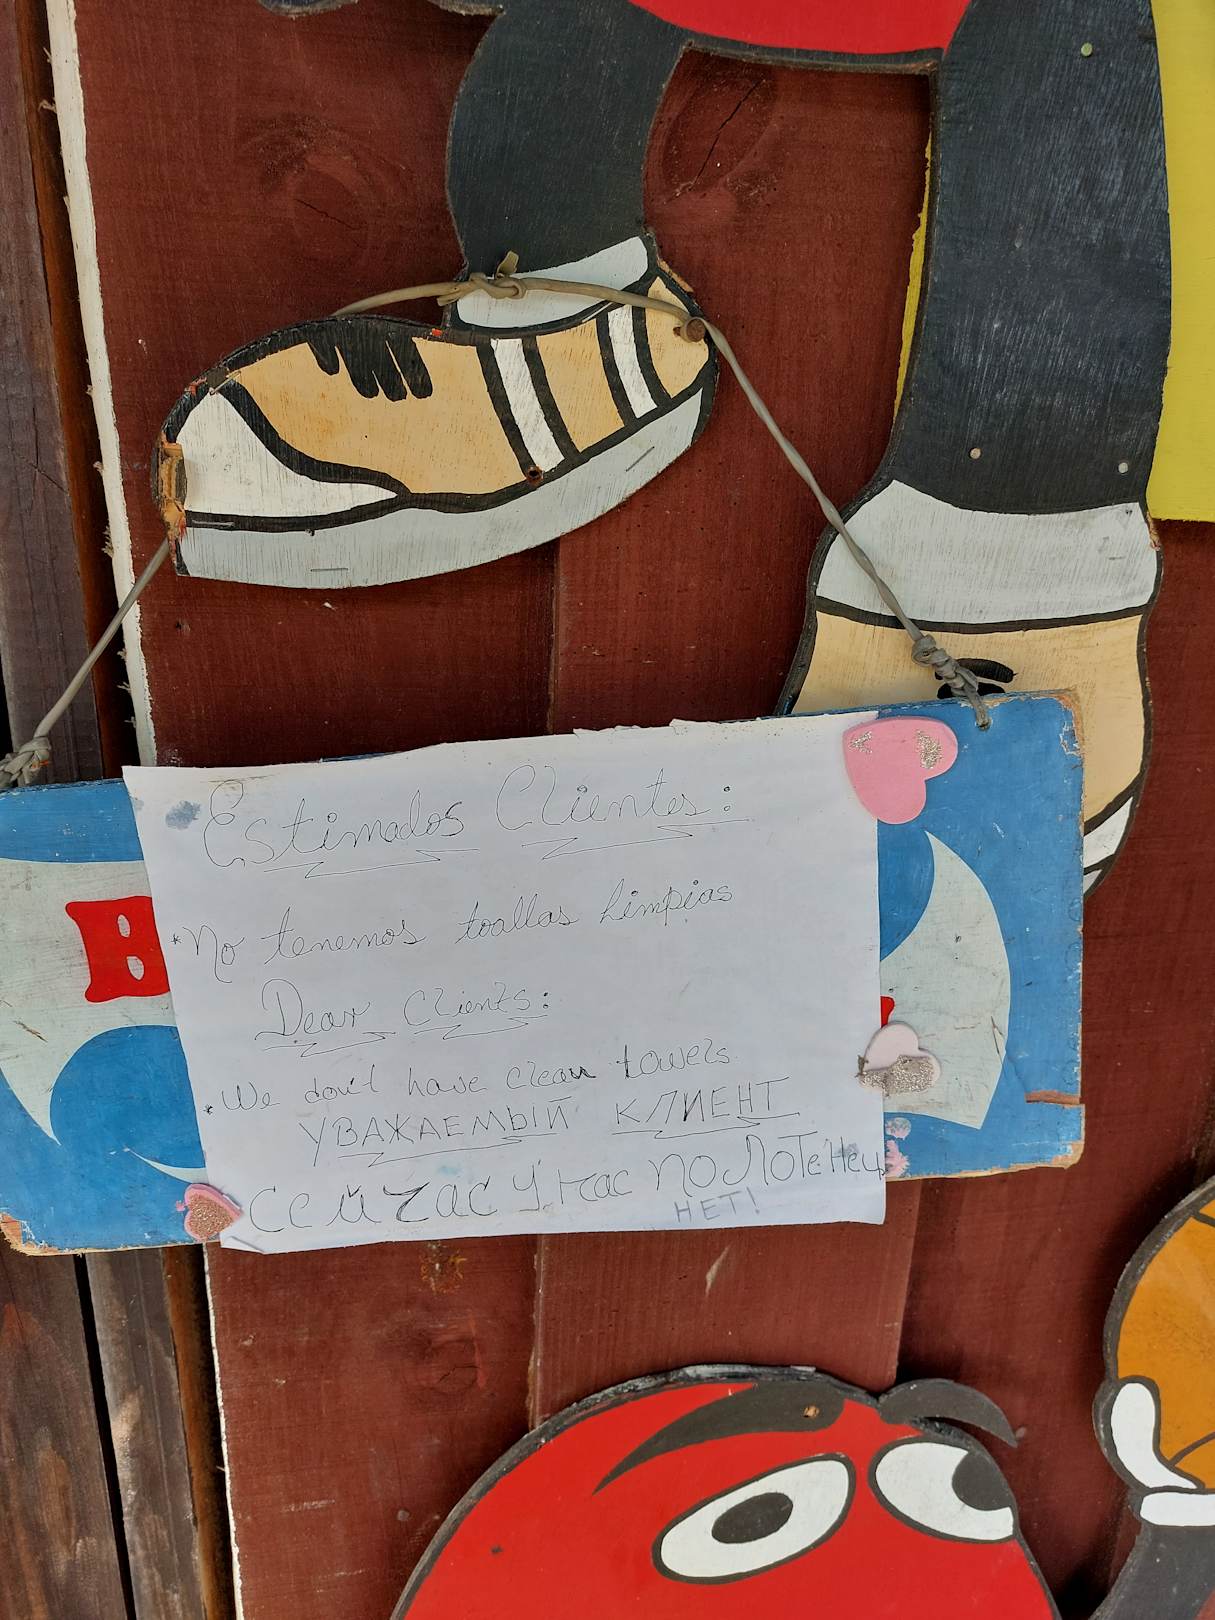 Estimados Clientes:
*No tenemos toallas limpias
Dear Clients:
*We don't have clean towels
УВАЖАЕМЫЙ КЛИЕНТ
Сейчас У нас полотенец
НЕТ!
B